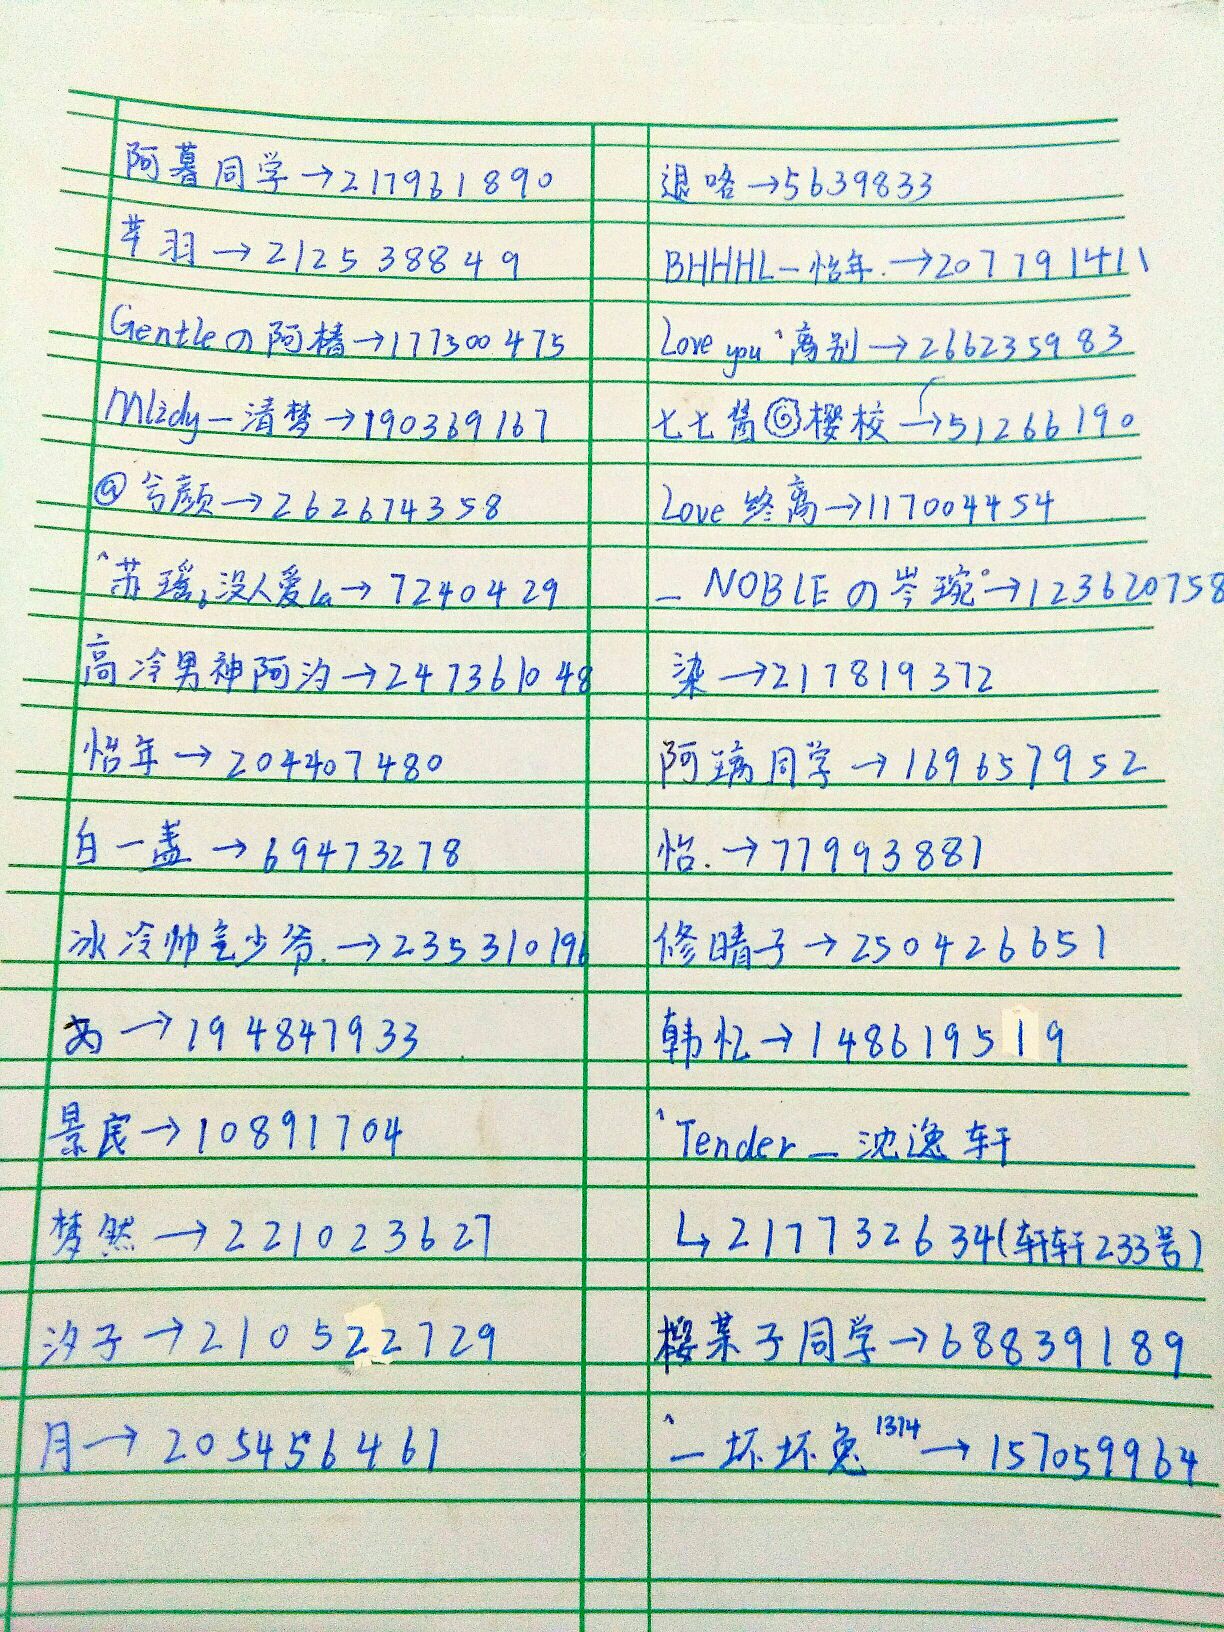 阿暮同学→217961890
芊羽→212538849
Gentleの阿楿→177300475
Mlzdy—清梦→190369167
@兮颜→262674358
^苏瑶。没人爱La→7240429
高冷男神阿汐→247361048
怡年→204407480
白一盏→69473278
冰冷帅气少爷.→235310196
→194847933
景宸→10891704
梦然→221023627
汐子→210522729
月→205456461
退咯→5639833
BHHHL—怡年.→207791411
Love you`离别→266235983
七七酱@樱校→51266190
Love 终离→117004454
—NOBLEの岑琬°→123620758
染→217819372
阿璃同学→169657952
怡.→77993881
修晴子→250426651
韩忆→148619519
^Tender—沈逸轩
↳217732634(轩轩233号)
樱某子同学→68839189
^—坏坏兔1314→157059964